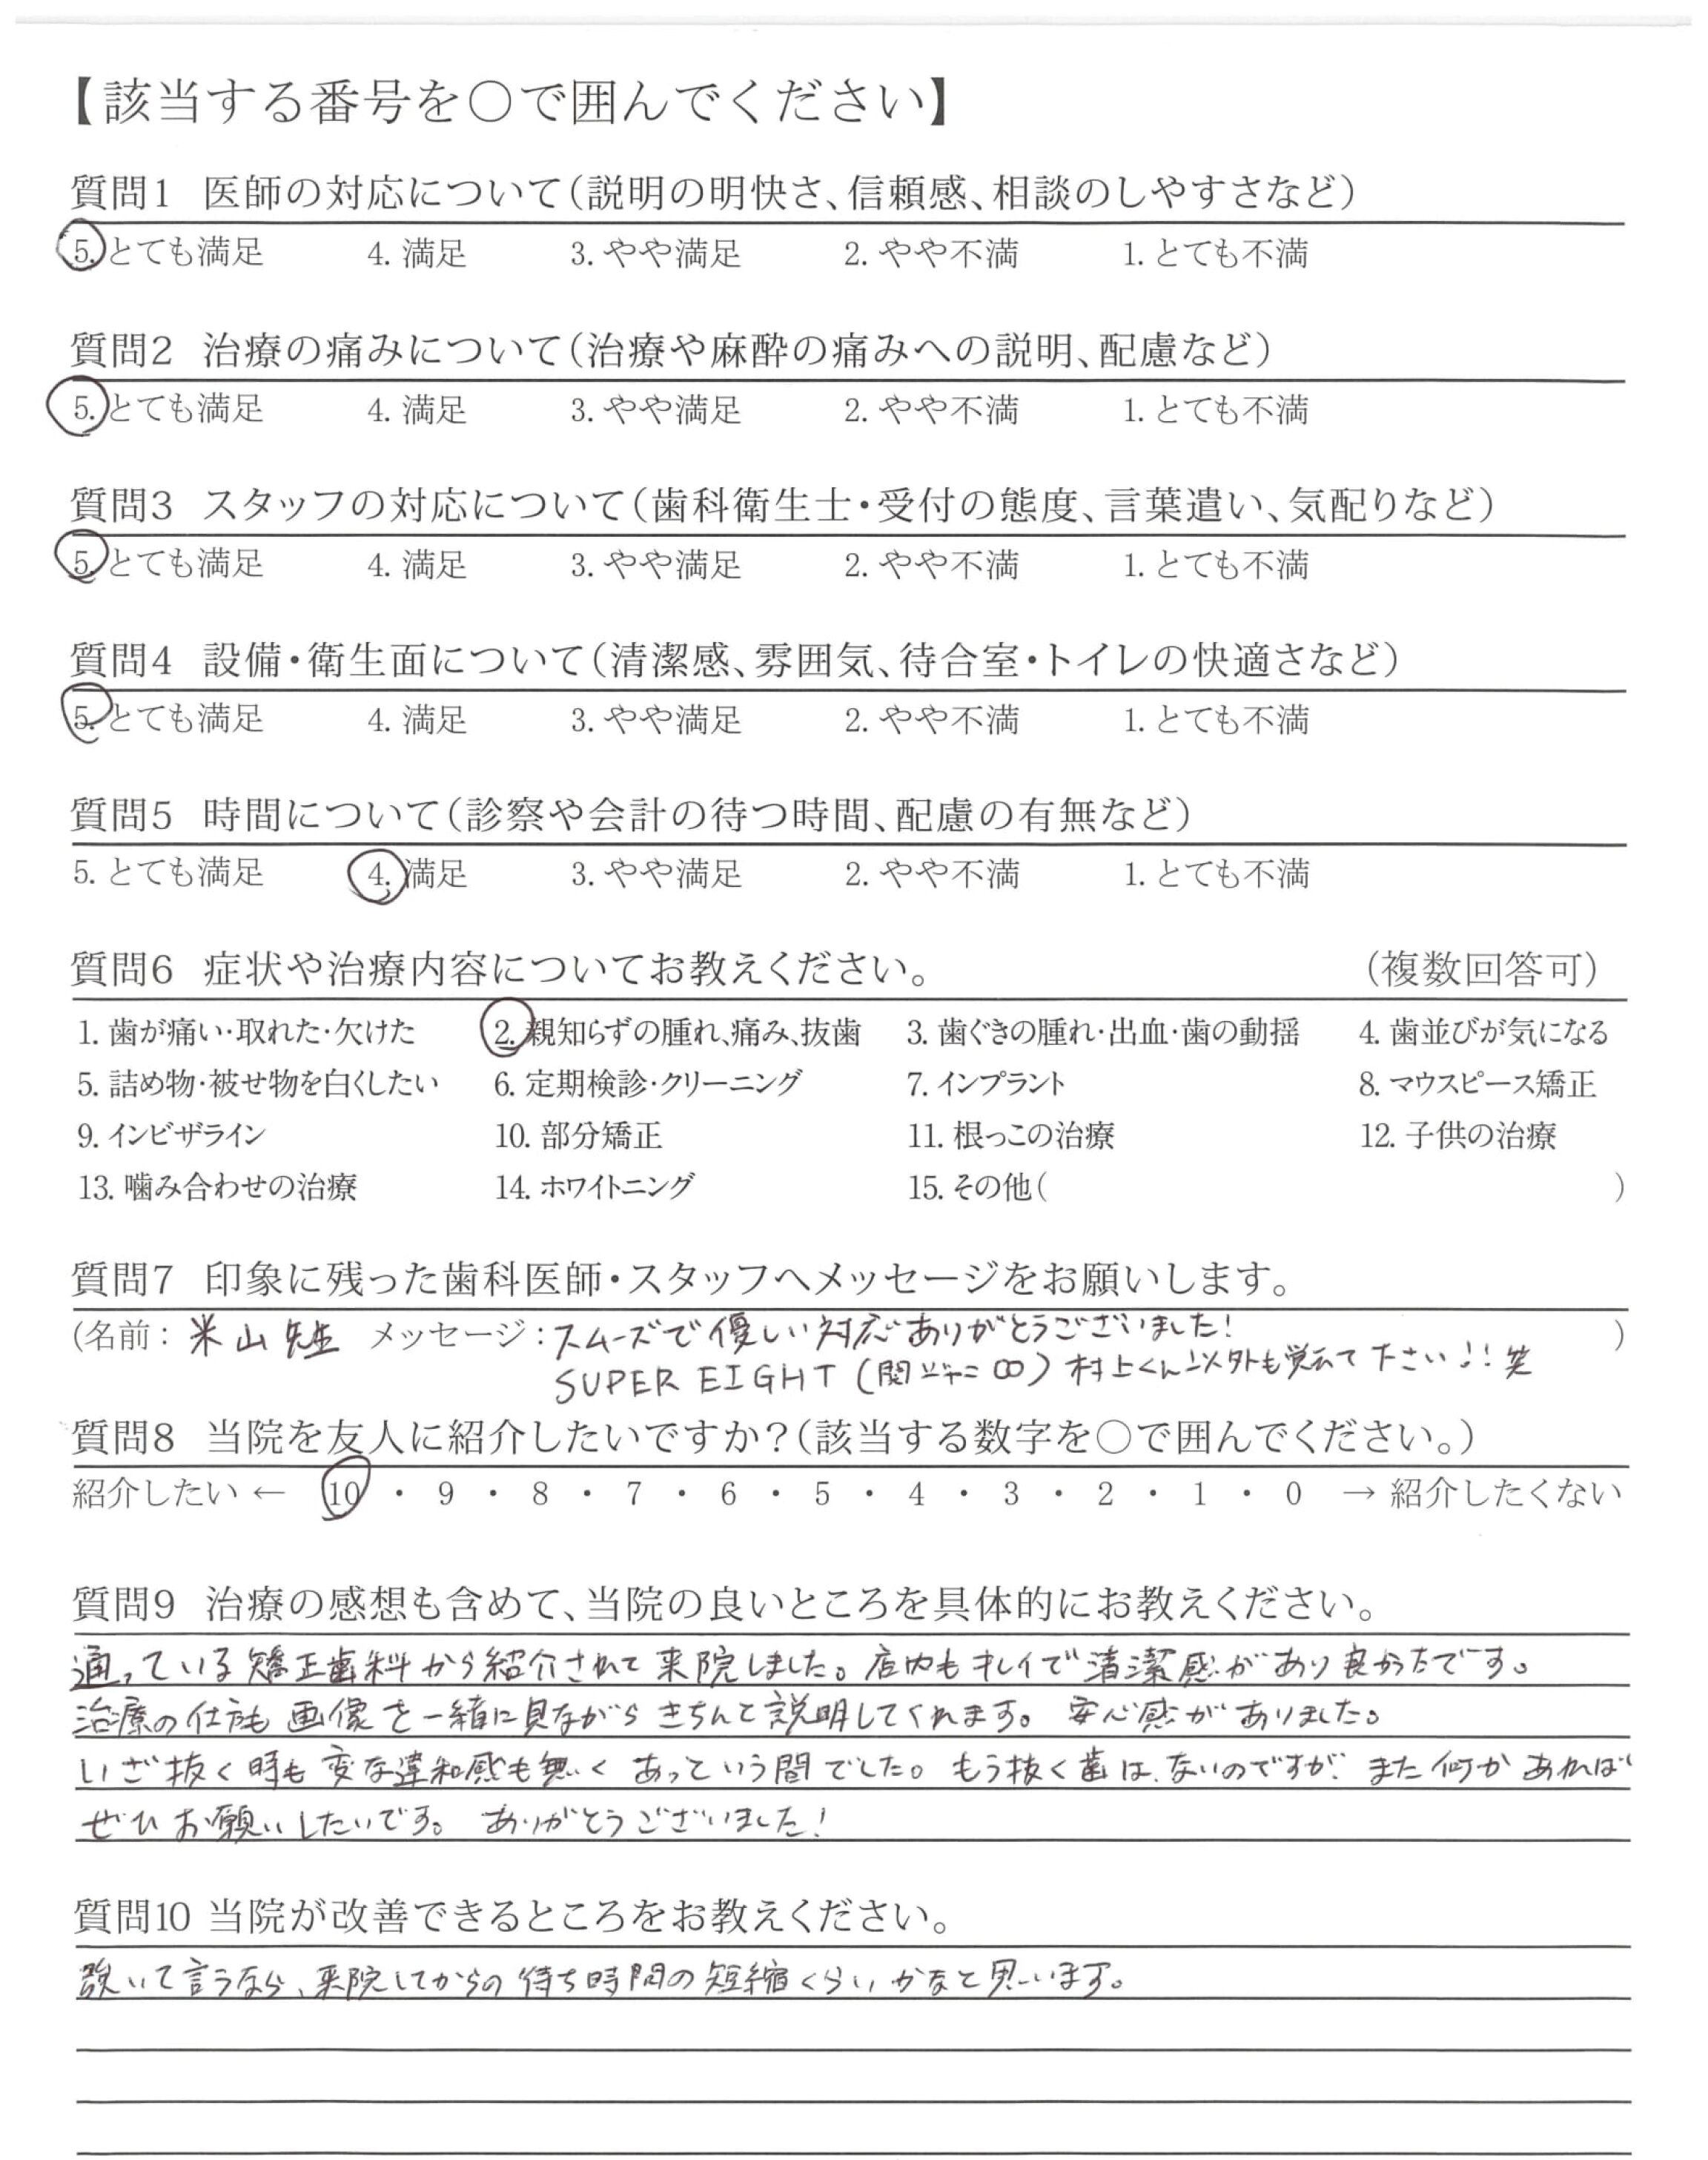 【該当する番号を○で囲んでください】
質問1 医師の対応について(説明の明快さ、信頼感、相談のしやすさなど)
5. とても満足 4. 満足 3. やや満足 2. やや不満 1. とても不満
質問2 治療の痛みについて(治療や麻酔の痛みへの説明、配慮など)
5. とても満足 4. 満足 3. やや満足 2. やや不満 1. とても不満
質問3 スタッフの対応について(歯科衛生士・受付の態度、言葉遣い、気配りなど)
5. とても満足 4. 満足 3. やや満足 2. やや不満 1. とても不満
質問4 設備・衛生面について(清潔感、雰囲気、待合室・トイレの快適さなど)
5. とても満足 4. 満足 3. やや満足 2. やや不満 1. とても不満
質問5 時間について(診察や会計の待つ時間、配慮の有無など)
5. とても満足 4. 満足 3. やや満足 2. やや不満 1. とても不満
質問6 症状や治療内容についてお教えください。 (複数回答可)
1. 歯が痛い・取れた・欠けた 2. 親知らずの腫れ、痛み、抜歯 3. 歯ぐきの腫れ・出血・歯の動揺 4. 歯並びが気になる
5. 詰め物・被せ物を白くしたい 6. 定期検診・クリーニング 7. インプラント 8. マウスピース矯正
9. インビザライン 10. 部分矯正 11. 根っこの治療 12. 子供の治療
13. 噛み合わせの治療 14. ホワイトニング 15. その他( )
質問7 印象に残った歯科医師・スタッフへメッセージをお願いします。
(名前: 米山先生 メッセージ: スムーズで優しい対応ありがとうございました! )
SUPER EIGHT (関ジャニ∞) 村上くん以外も覚えて下さい!! 笑
質問8 当院を友人に紹介したいですか?(該当する数字を○で囲んでください。)
紹介したい ← 10 ・ 9 ・ 8 ・ 7 ・ 6 ・ 5 ・ 4 ・ 3 ・ 2 ・ 1 ・ 0 → 紹介したくない
質問9 治療の感想も含めて、当院の良いところを具体的にお教えください。
通っている矯正歯科から紹介されて来院しました。店内もキレイで清潔感があり良かったです。
治療の仕方も画像を一緒に見ながらきちんと説明してくれます。安心感がありました。
いざ抜く時も変な違和感も無くあっという間でした。もう抜く歯は、ないのですが、また何かあれば
ぜひお願いしたいです。ありがとうございました!
質問10 当院が改善できるところをお教えください。
強いて言うなら、来院してからの待ち時間の短縮くらいかなと思います。